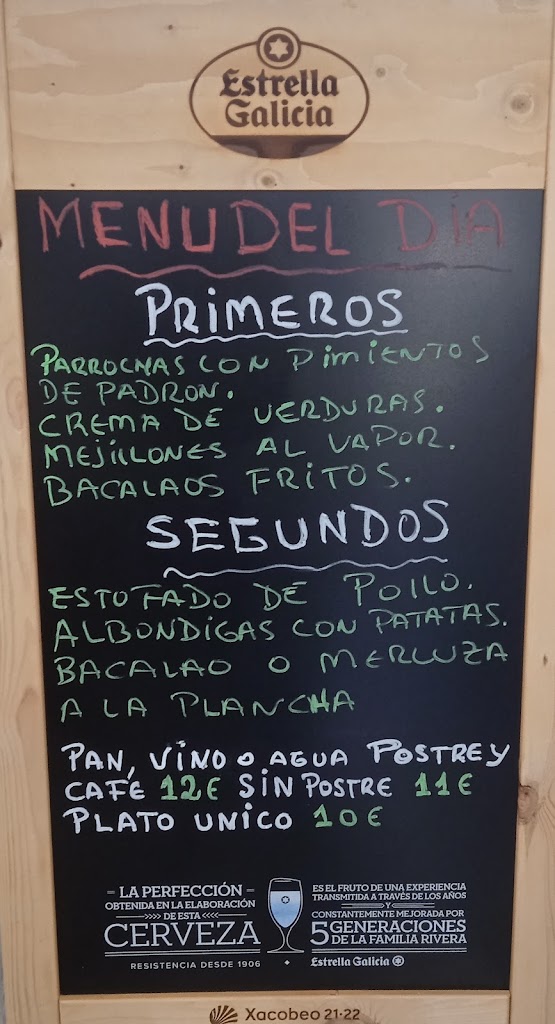 Estrella
Galicia
MENU DEL DIA
PRIMEROS
PARROCHAS CON PIMIENTOS
DE PADRON.
CREMA DE VERDURAS.
MEJILLONES AL VAPOR.
BACALAOS FRITOS.
SEGUNDOS
ESTOFADO DE POLLO.
ALBONDIGAS CON PATATAS.
BACALAO O MERLUZA
A LA PLANCHA
PAN, VINO O AGUA POSTRE Y
CAFE 12€ SIN POSTRE 11€
PLATO UNICO 10€
LA PERFECCIÓN
OBTENIDA EN LA ELABORACIÓN
DE ESTA
CERVEZA
RESISTENCIA DESDE 1906
ES EL FRUTO DE UNA EXPERIENCIA
TRANSMITIDA A TRAVÉS DE LOS AÑOS
Y
CONSTANTEMENTE MEJORADA POR
5 GENERACIONES
DE LA FAMILIA RIVERA
Estrella Galicia
Xacobeo 21·22